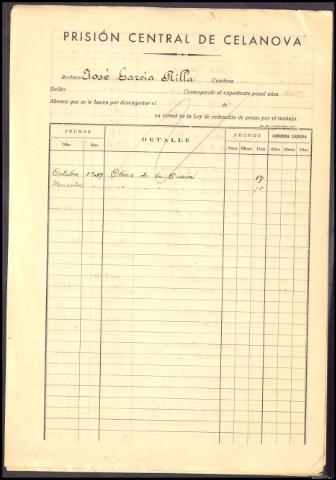 PRISIÓN CENTRAL DE CELANOVA
Recluso José García Rilla Condena
Delito Corresponde al expediente penal núm.
Abonos que se le hacen por desempeñar el de
en virtud de la Ley de redención de penas por el trabajo.
FECHAS DETALLE ABONOS CONDENA LÍQUIDA
Mes Año Años Meses Días Años Meses Días
Octubre 1939 Obras de la Prisión 17
Noviembre " " " " 15